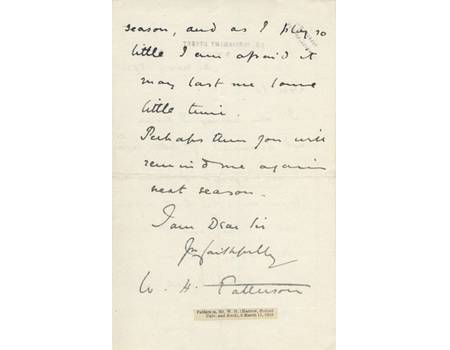 season, and as I play so
little I am afraid it
may last me some
little time.
Perhaps then you will
remind me again
next season.
I am Dear Sir
Yrs faithfully
W. H. Patterson
Patterson, Mr. W. H. (Harrow, Oxford
Univ. and Kent),